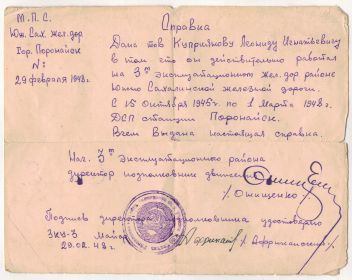 М.П.С.
Юж. Сах. жел. дор
Гор. Поронайск
№:
29 февраля 1948 г.
Справка
Дана тов Куприянову Леониду Игнатьевичу
в том что он действительно работал
на 3ᵐ эксплуатационном жел. дор районе
Южно Сахалинской железной дороги.
С 15 Октября 1945 г. по 1 Марта 1948 г.
ДСП станции Поронайск.
В чем Выдана настоящая справка.
Нач. 3го эксплуатационного района
директор подполковник движения
/Онищенко/
Подпись директора подполковника удостоверяю
ЗКУ-3 Майор
/Африканский/
29.02.48 г.